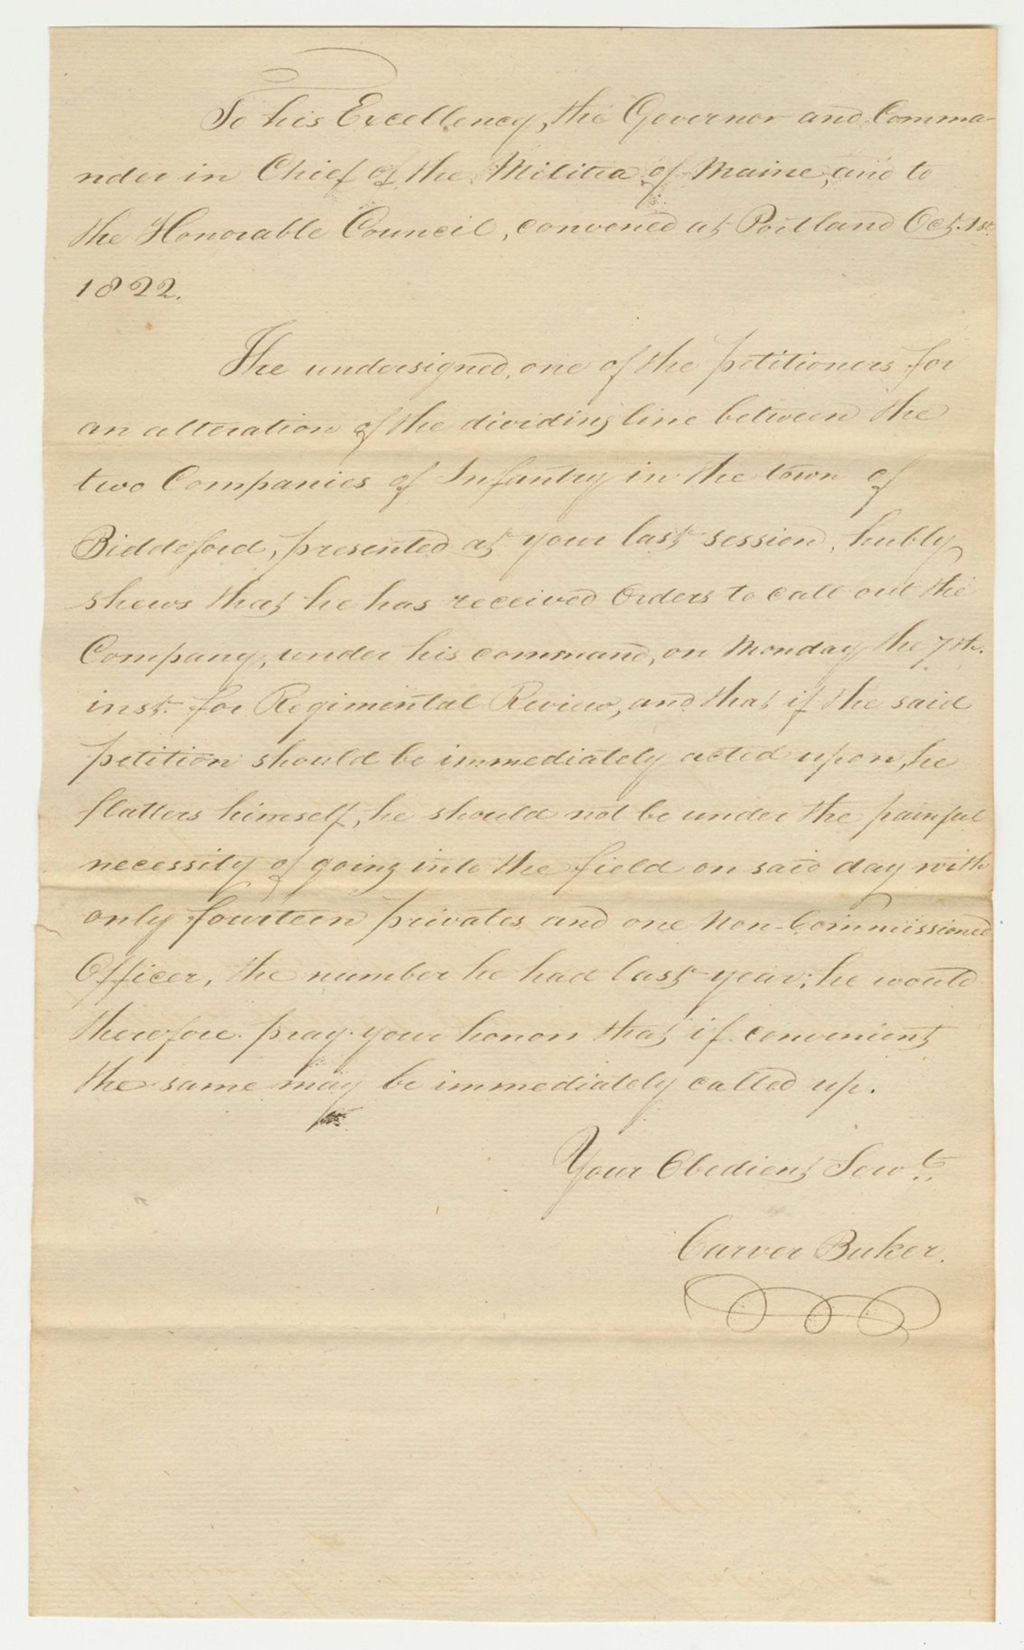 To his Excellency, the Governor and Comma-
nder in Chief of the Militia of Maine, and to
the Honorable Council, convened at Portland Oct. 1st.
1822.
The undersigned, one of the petitioners for
an alteration of the dividing line between the
two Companies of Infantry in the town of
Biddeford, presented at your last session, hubly
shews that he has received Orders to call out the
Company, under his command, on Monday the 7th.
inst. for Regimental Review, and that if the said
petition should be immediately acted upon, he
flatters himself, he should not be under the painful
necessity of going into the field on said day with
only fourteen privates and one Non-Commissioned
Officer, the number he had last year; he would
therefore pray your honors that if convenient
the same may be immediately called up.
Your Obedient Servt.
Carver Baker.